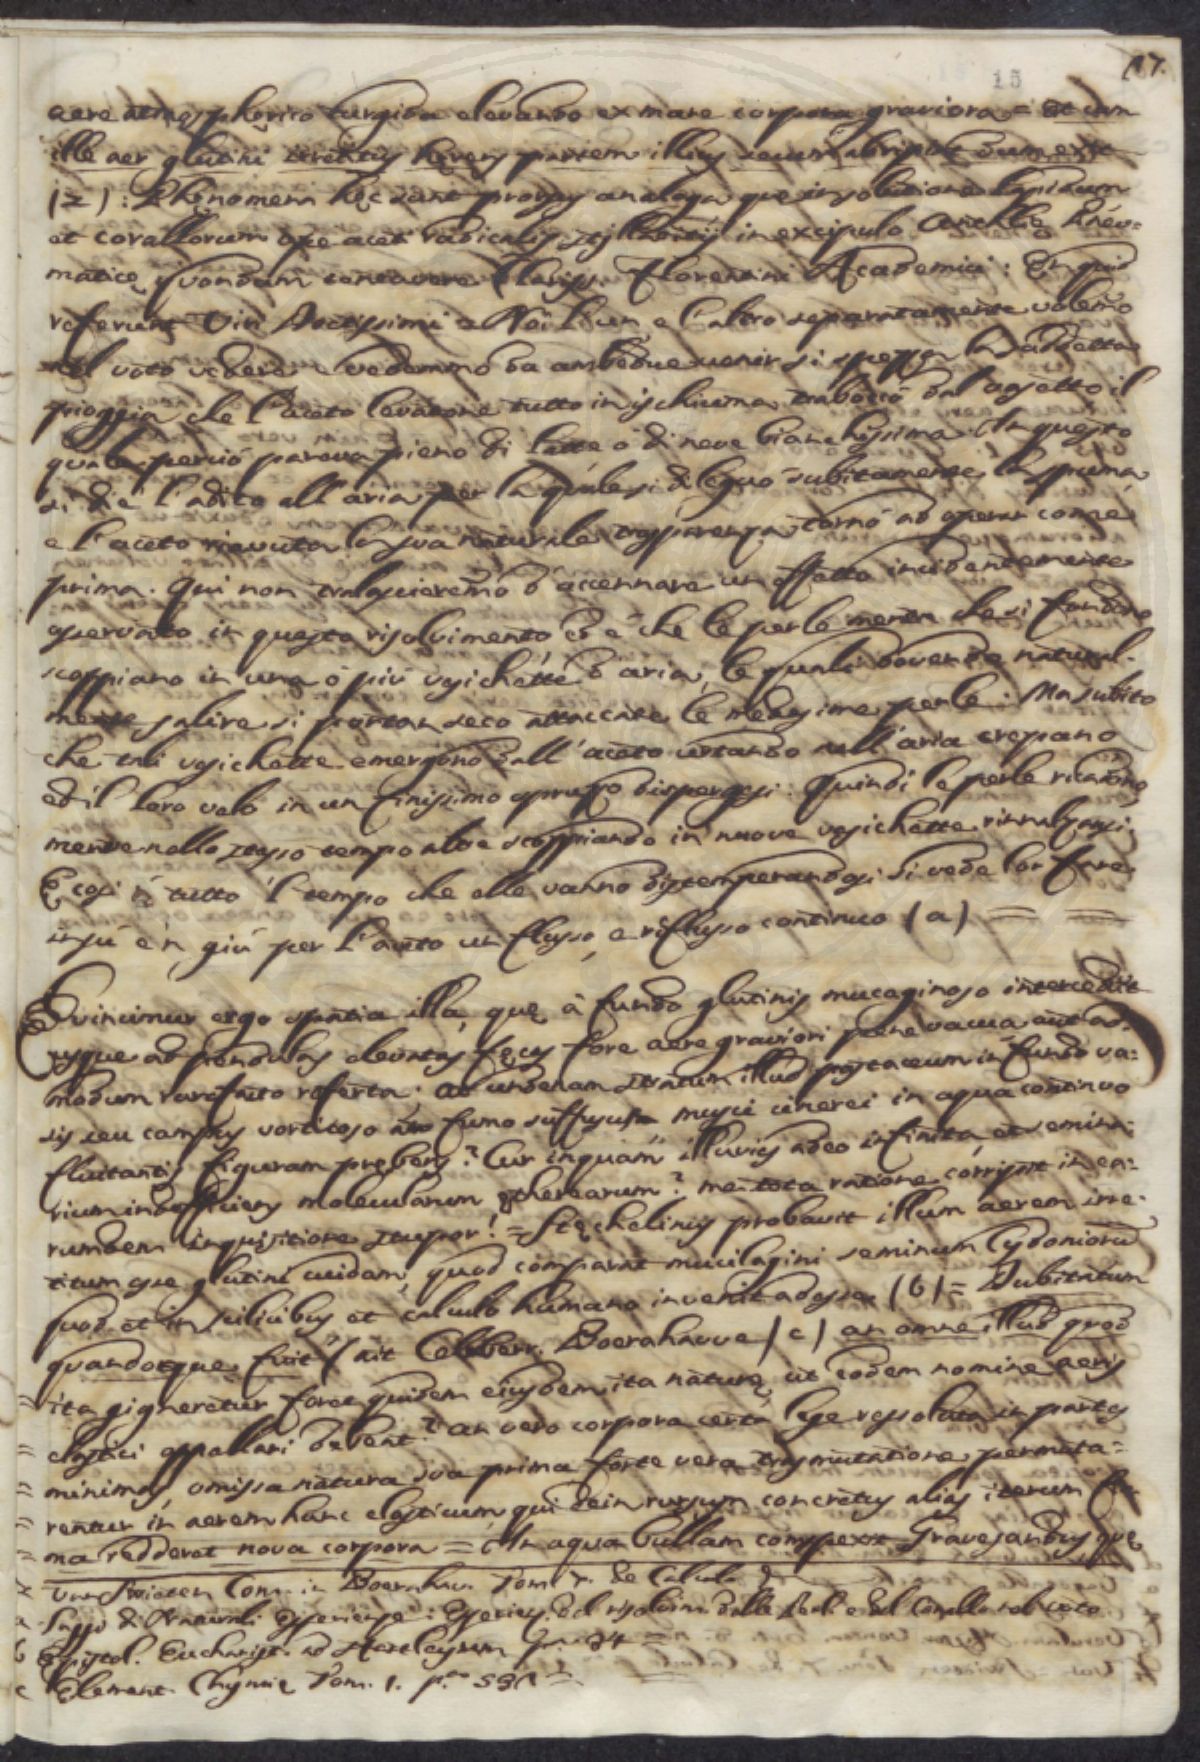 15
17.
aere atmosphęrico turgida elevando ex mare corpora graviora = et cum
ille aer glutini irretitus hęrens partem illius secum abripiat dum exit
(z): Phęnomena hęc sunt prorsus analoga que in solutione lapidum
et corallorum ope aceti radicalis stillatitii in excipulo Anthlię Pneu=
maticę quondam Clariss. Florentini Academici: En quid
referunt Viri Doctissimi = Noi l'un e l'altro separatamente volemo
nel voto vedere e vedemmo da ambedue venir si spessa la suddetta
pioggia che l'aceto levatone tutto in ischiuma traboccò dal vasetto il
quale perciò pareva pieno di latte ò di neve bianchissima. In questo
si diè l'adito all'aria per la quale si dileguò subitamente la spuma
e l'aceto riavuta la sua naturale trasparenza tornò ad operar come
prima. Qui non tralasceremo d'accennare un effetto incidentemente
osservato in questo risolvimento, ed e' che le perle mentre che si fondono
scoppiano in una ò più vesichette d'aria, le quali dovendo natural-
mente salire si portan seco attaccate le medesime perle. Ma subito
che tali vesichette emergono dall'aceto urtando nell'aria crepano
ed il loro velo in un finissimo spruzo dispergesi. Quindi le perle ricadono
mentre nello stesso tempo altre scoppiando in nuove vesichette rinnalzansi.
E così in tutto 'l tempo che elle vanno distemperandosi si vede lor fare
in su e 'n giù per l'aceto un flusso, e riflusso continuo (a) = =
Evincimur ergo spatia illa, quę à fundo glutinis mucaginoso intercedit
usque ad pendulas elevatas fęces fore aere graviori pene vacua aut ad-
modum rarefacto referta. At undenam stratum illud in fundo va=
sis seu campus vorticoso fumo suffusus musci cinerei in aqua continuo
fluitantis figuram prębens? Cur inquam illuvies adeo infinita, et semina-
rium indefficiens molecularum ętherearum? me tota ratione corripit in ea=
rumdem inquisitione stupor! = Stęchelinus probavit illum aerem irre-
titum esse glutini cuidam, quod comparat mucilagini seminum Cydoniorum
quod et in silicibus et calculo humano invenit adesse (b) = Dubitatum
quandoque fuit (ait Celeberr. Boerahauve (c) an omne illud quod
ita gigneretur foret quidem eiusdem ita naturę ut eodem nomine aeris
elastici appellari debeat? an vero corpora certa lege resoluta in partes
minimas, omissa natura sua prima forte vera trasmutatione permuta=
rentur in aerem hunc elasticum, qui dein rursum concretus alias iterum for-
ma redderet nova corpora = In aqua bullam compexit Gravesandius quę
Van Swieten Com. in Boerahav. Tom. de Calculo
a Saggi di Naturali Esperienze: Esperienz. del risolvim. delle Perle e del Corallo nel voto
b Epistol. Eucharist. ad Hartleyum pa. 34 =
c Element. Chymię Tom. 1. p.